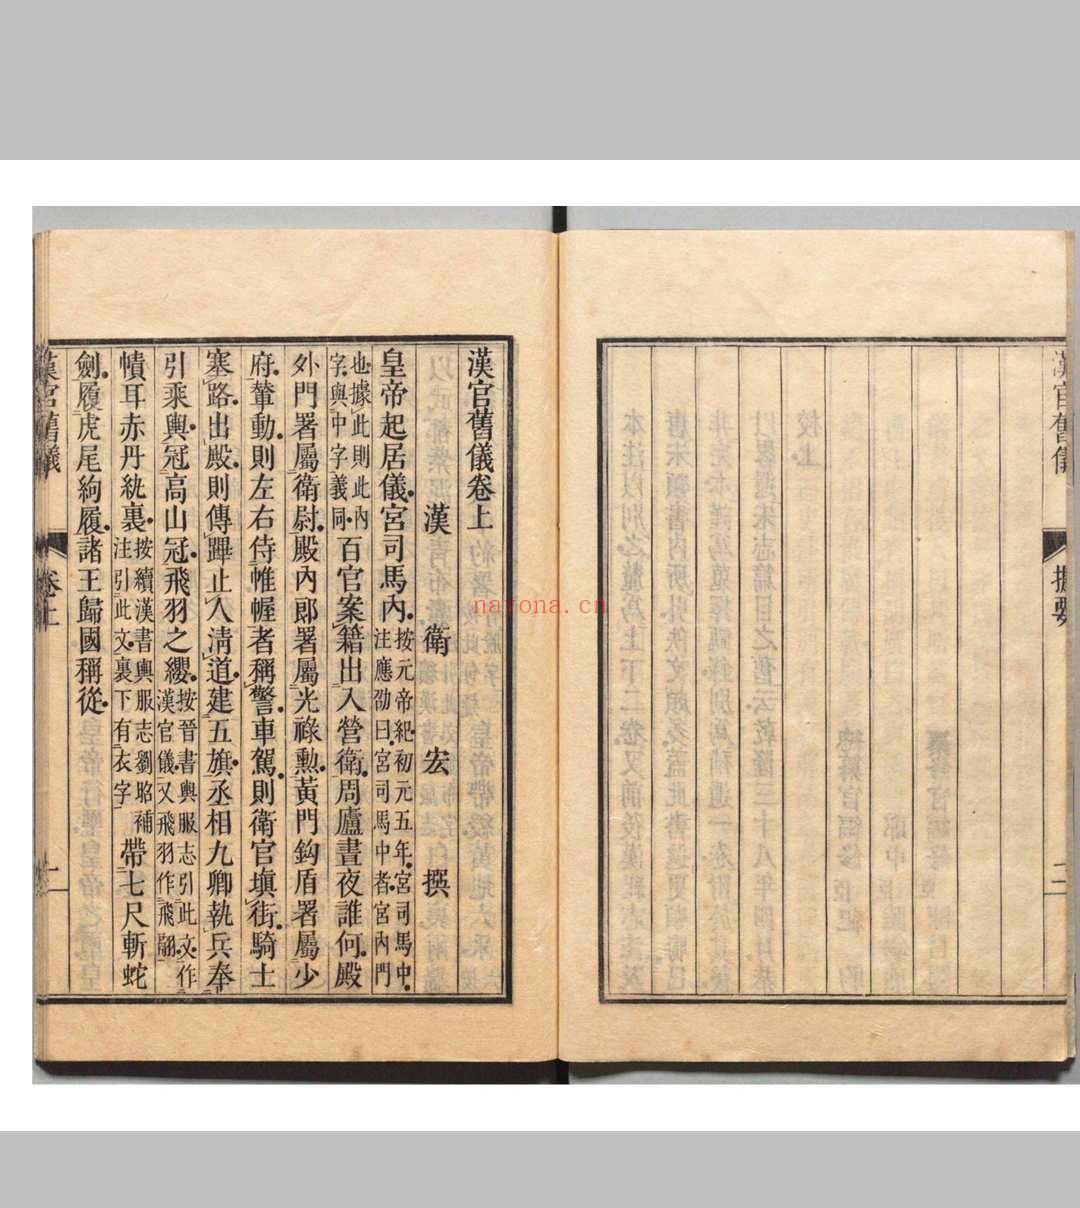 漢官舊儀
提要
二
漢官舊儀卷上
漢 衛 宏 撰
皇帝起居儀宮司馬內按元帝紀初元五年宮司馬中注應劭曰宮司馬中者宮內門
也據此則此內字與中字義同百官案籍出入營衛周廬晝夜誰何殿
外門署屬衛尉殿內郎署屬光祿勳黃門鈎盾署屬少
府輦動則左右侍帷幄者稱警車駕則衛官塡街騎士
塞路出殿則傳蹕止人淸道建五旗丞相九卿執兵奉
引乘輿冠高山冠飛羽之纓按晉書輿服志引此文作漢官儀又飛羽作飛翮
幘耳赤丹紈裏按續漢書輿服志劉昭補注引此文裏下有衣字帶七尺斬蛇
劍履虎尾絇履諸王歸國稱從
漢官舊儀
卷上
一
nayona.cn